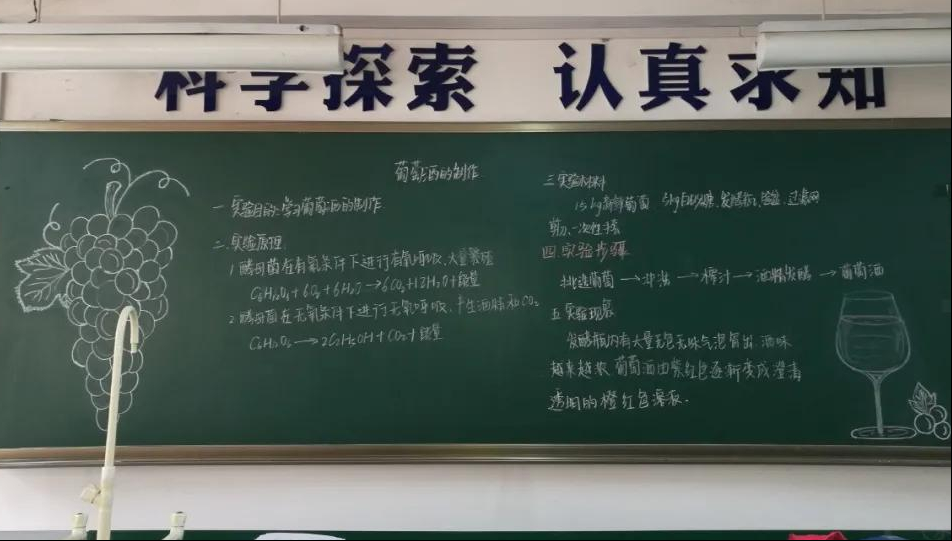 科学探索 认真求知
葡萄酒的制作
一.实验目的:学习葡萄酒的制作
二.实验原理
1.酵母菌在有氧条件下进行有氧呼吸,大量繁殖
C₆H₁₂O₆+6O₂+6H₂O→6CO₂+12H₂O+能量
2.酵母菌在无氧条件下进行无氧呼吸、产生酒精和CO₂
C₆H₁₂O₆→2C₂H₅OH+CO₂+能量
三.实验材料
15kg新鲜葡萄 5kg白砂糖、发酵瓶、瓷盆、过滤网
剪刀、一次性手套
四.实验步骤
挑选葡萄→冲洗→榨汁→酒精发酵→葡萄酒
五.实验现象
发酵瓶内有大量无色无味气泡冒出,酒味
越来越浓 葡萄酒由紫红色逐渐变成澄清
透明的橙红色溶液.